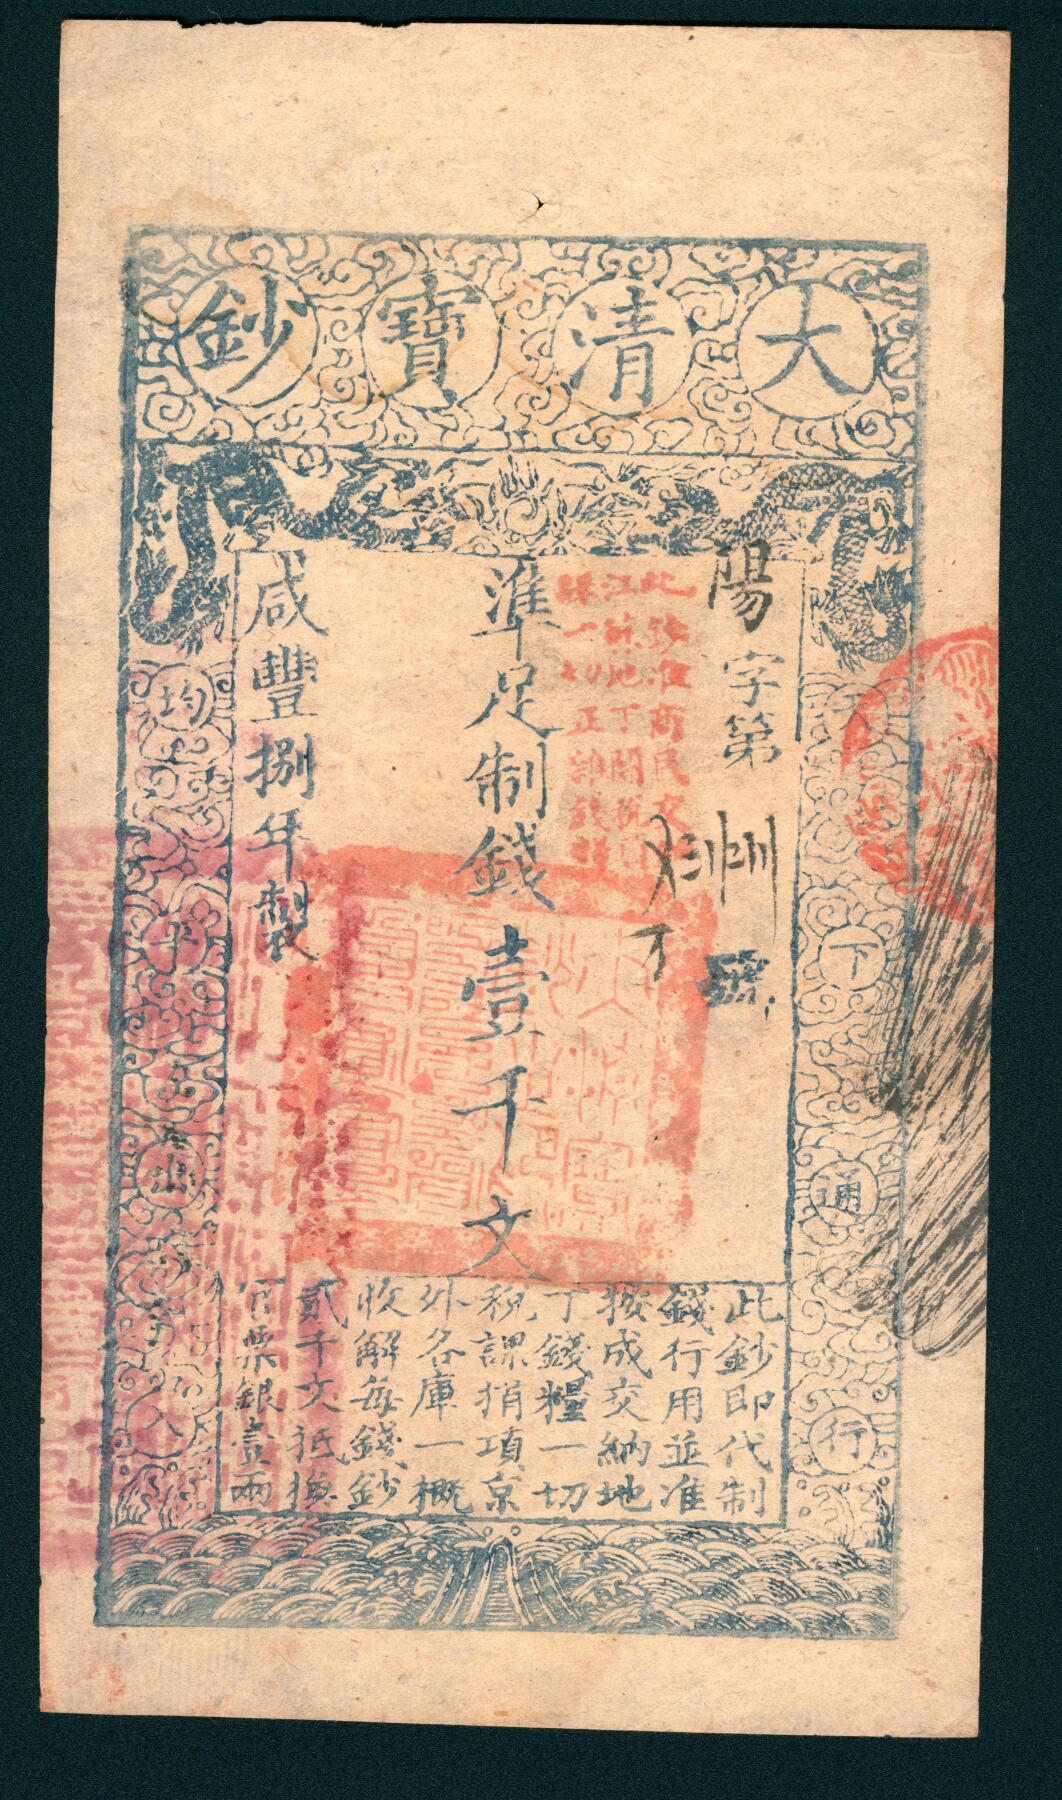 大清寶鈔
天下通行
均平出入
陽字第
號
此鈔准商民交
江蘇地丁關稅
一切正雜錢糧
準足制錢壹千文
咸豐捌年製
此鈔即代制
錢行用並准
按成交納地
丁錢糧一切
稅課捐項京
外各庫一概
收解每錢鈔
貳千文抵換
官票銀壹兩